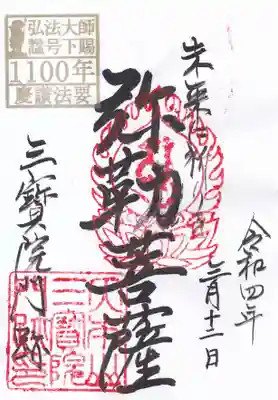 弘法大師
諡号下賜
1100年
慶讃法要
令和四年
三月十二日
未来
弥勒菩薩
三寶院門跡
三寶院